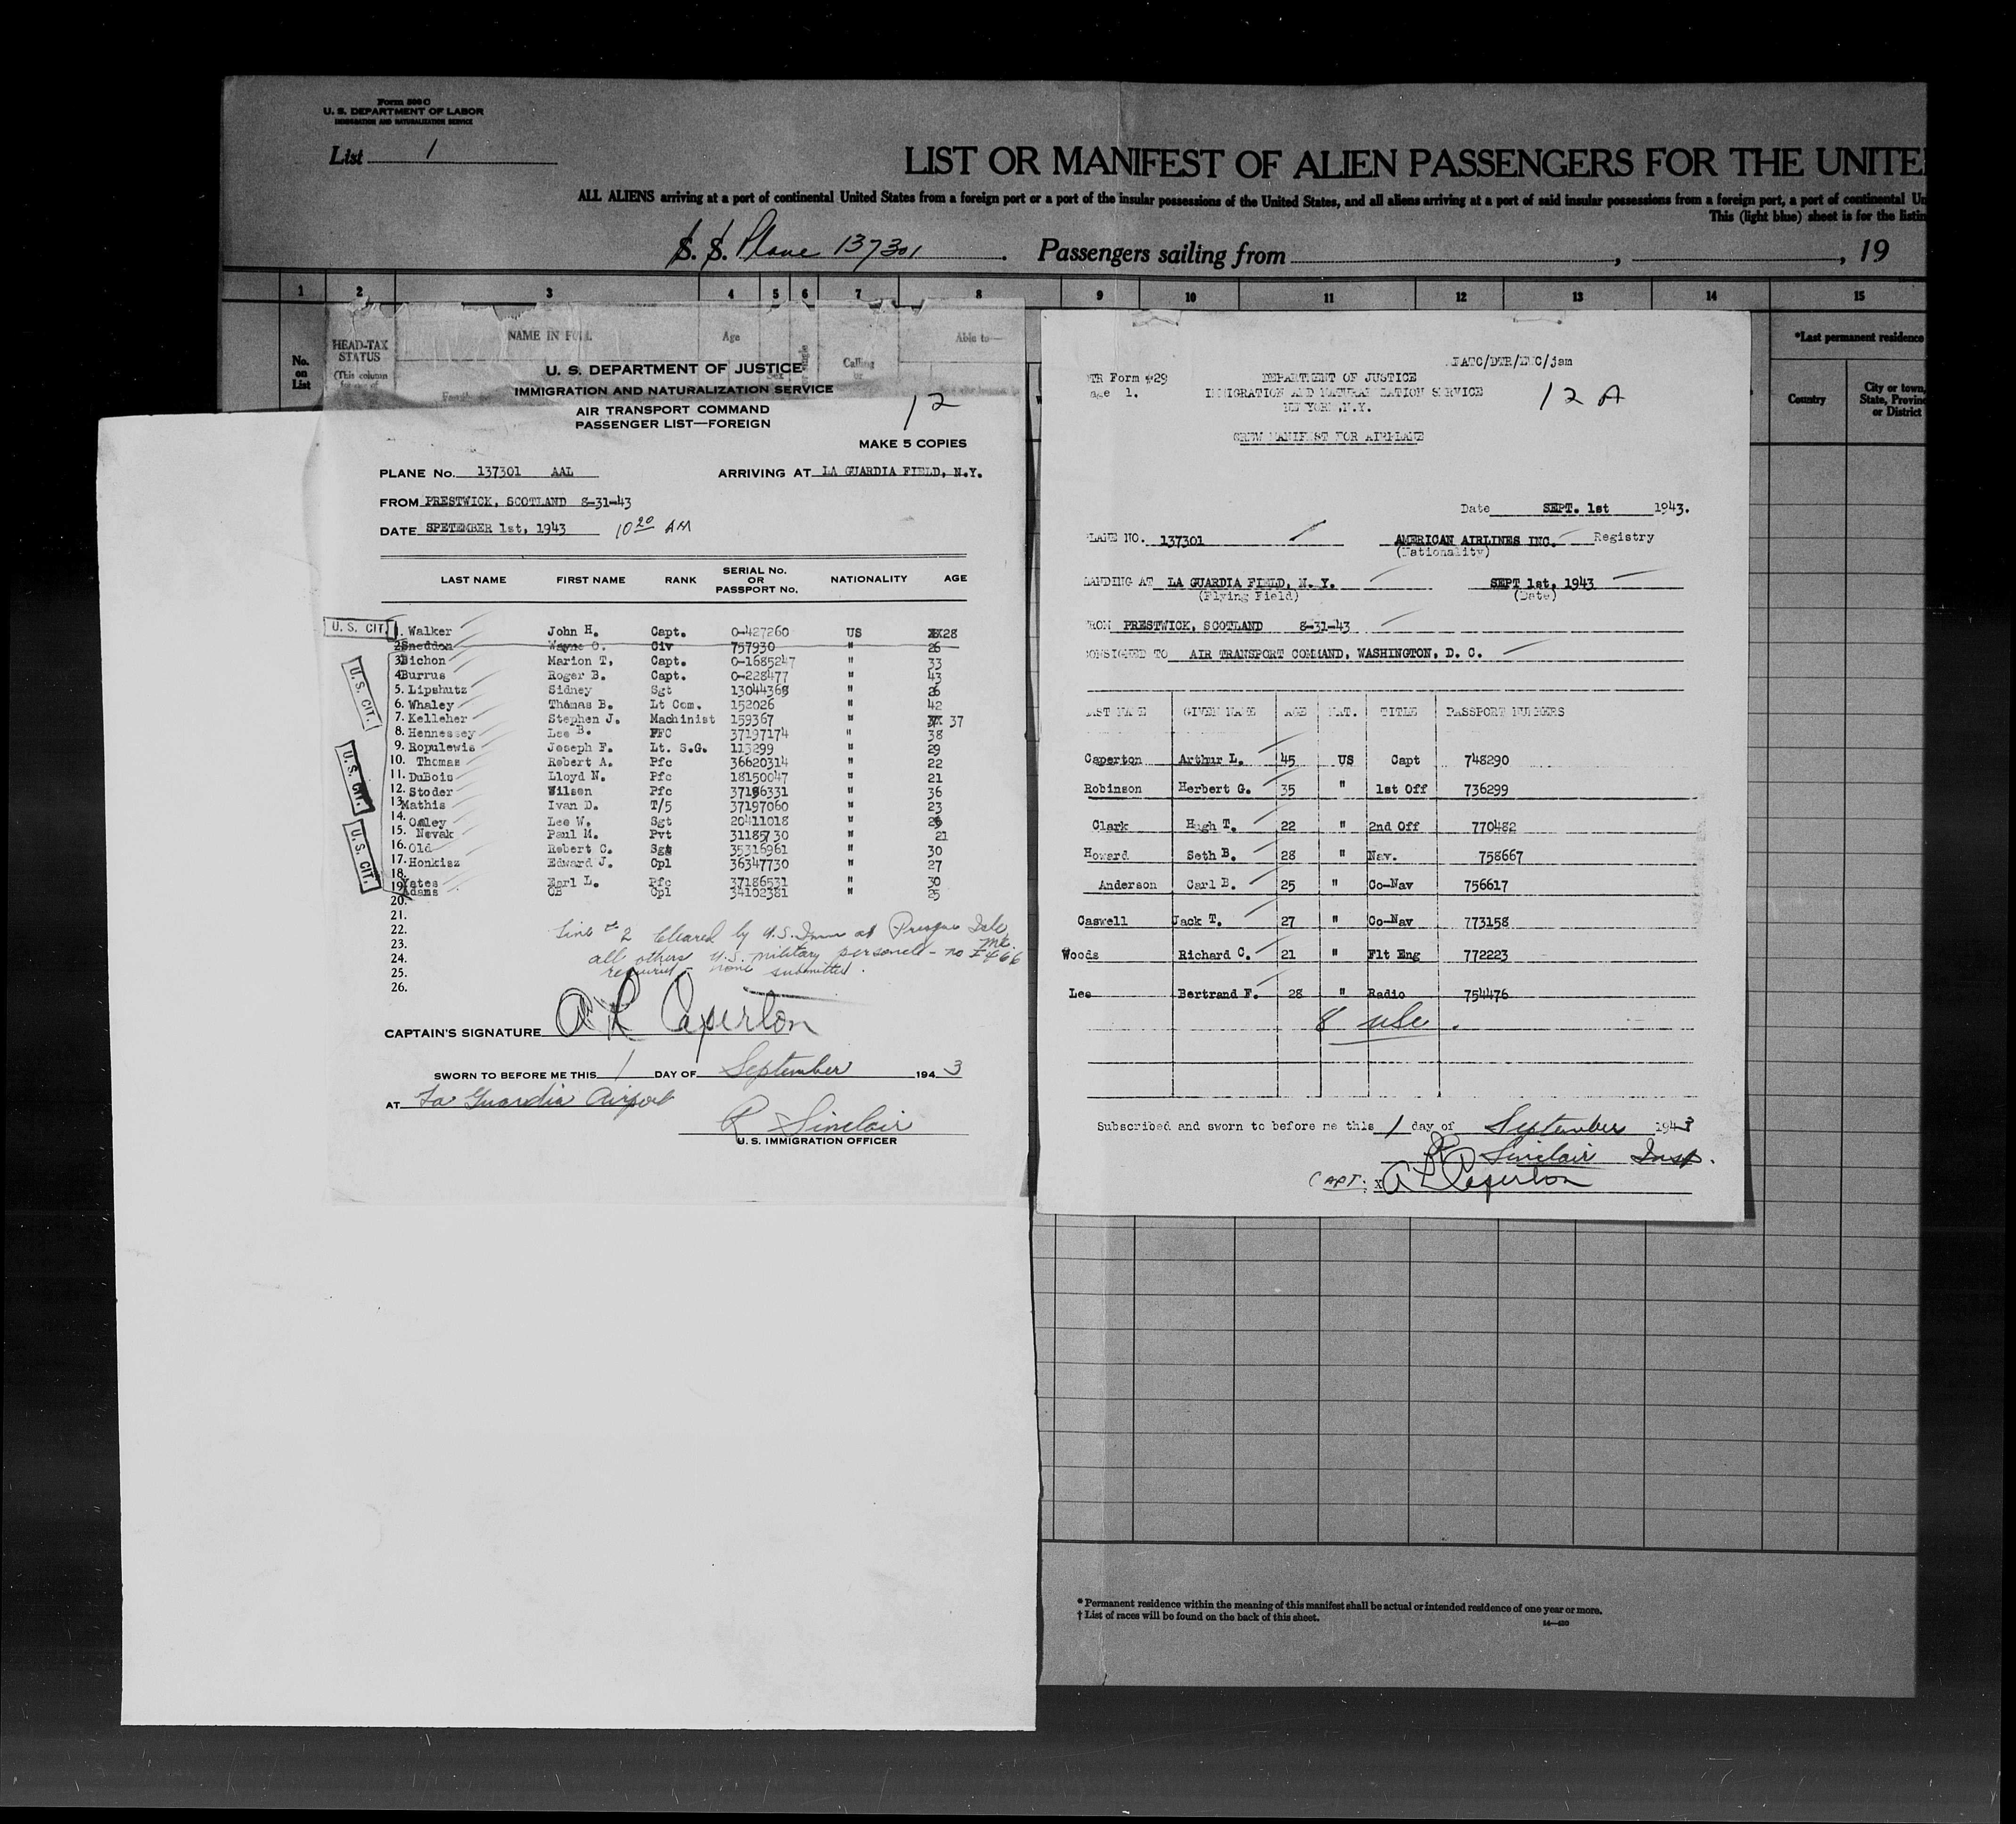 Form 500 C
U. S. DEPARTMENT OF LABOR
IMMIGRATION AND NATURALIZATION SERVICE
List 1
LIST OR MANIFEST OF ALIEN PASSENGERS FOR THE UNITE
ALL ALIENS arriving at a port of continental United States from a foreign port or a port of the insular possessions of the United States, and all aliens arriving at a port of said insular possessions from a foreign port, a port of continental Un
This (light blue) sheet is for the listin
S. S. Plane 137301. Passengers sailing from , , 19
1 2 3 4 5 6 7 8 9 10 11 12 13 14 15
No. on List
HEAD-TAX STATUS
(This column
NAME IN FULL
Age
Sex
Calling or
Able to—
*Last permanent residence
Country
City or town, State, Provinc or District
U. S. DEPARTMENT OF JUSTICE
IMMIGRATION AND NATURALIZATION SERVICE
AIR TRANSPORT COMMAND
PASSENGER LIST—FOREIGN
12
MAKE 5 COPIES
PLANE No. 137301 AAL ARRIVING AT LA GUARDIA FIELD, N.Y.
FROM PRESTWICK, SCOTLAND 8-31-43
DATE SPETEMBER 1st, 1943 10 20 AM
LAST NAME FIRST NAME RANK SERIAL No. OR PASSPORT No. NATIONALITY AGE
U. S. CIT.
1. Walker John H. Capt. 0-427260 US 28
2 Sneddon Wayne O. Civ 757930 " 26
3 Bichon Marion T. Capt. 0-1685247 " 33
4 Burrus Roger B. Capt. 0-228477 " 43
5. Lipshutz Sidney Sgt 13044368 " 26
6. Whaley Thomas B. Lt Com. 152026 " 42
7. Kelleher Stephen J. Machinist 159367 " 37
8. Hennessey Lee B. PFC 37197174 " 38
9. Ropulewis Joseph F. Lt. S.G. 113299 " 29
10. Thomas Robert A. Pfc 36620314 " 22
11. DuBois Lloyd N. Pfc 18150047 " 21
12. Stoder Wilson Pfc 37186331 " 36
13. Mathis Ivan D. T/5 37197060 " 23
14. Lee W. Sgt 20411018 "
15. Novak Paul M. Pvt 31185730 " 21
16. Old Robert C. Sgt 35316961 " 30
17. Honkisz Edward J. Cpl 36347730 " 27
18. Yates Earl L. Pfc 37186531 " 30
19. Adams OB Cpl 34102381 " 25
20.
21.
22.
23.
24.
25.
26.
U. S. CIT.
U. S. CIT.
U. S. CIT.
Line #2 cleared by U.S. Imm at Presque Isle, Me.
all others U.S. military personel - no I 466
required - none submitted.
CAPTAIN'S SIGNATURE A L Caperton
SWORN TO BEFORE ME THIS 1 DAY OF September 194 3
AT La Guardia Airport
R Sinclair
U. S. IMMIGRATION OFFICER
/DTR/ENC/jam
TR Form #29
age 1.
DEPARTMENT OF JUSTICE
IMMIGRATION AND NATURALIZATION SERVICE
NEW YORK, N.Y.
12 A
CREW MANIFEST FOR AIRPLANE
Date SEPT. 1st 1943.
PLANE NO. 137301 AMERICAN AIRLINES INC. Registry
(Nationality)
LANDING AT LA GUARDIA FIELD, N. Y. SEPT 1st, 1943
(Flying Field) (Date)
FROM PRESTWICK, SCOTLAND 8-31-43
CONSIGNED TO AIR TRANSPORT COMMAND, WASHINGTON, D. C.
LAST NAME GIVEN NAME AGE NAT. TITLE PASSPORT NUMBERS
Caperton Arthur L. 45 US Capt 748290
Robinson Herbert G. 35 " 1st Off 736299
Clark Hugh T. 22 " 2nd Off 770482
Howard Seth B. 28 " Nav. 758667
Anderson Carl B. 25 " Co-Nav 756617
Caswell Jack T. 27 " Co-Nav 773158
Woods Richard C. 21 " Flt Eng 772223
Lee Bertrand F. 28 " Radio 754476
8 usc.
Subscribed and sworn to before me this 1 day of September 1943
R Sinclair Insp.
CAPT. x A L Caperton
* Permanent residence within the meaning of this manifest shall be actual or intended residence of one year or more.
† List of races will be found on the back of this sheet.
14—420